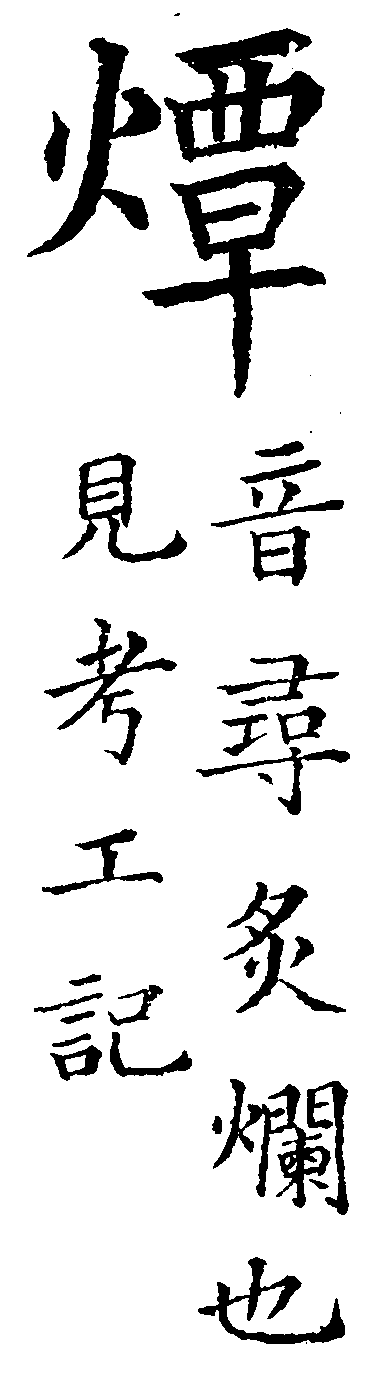 燂
音尋炙爛也
見考工記